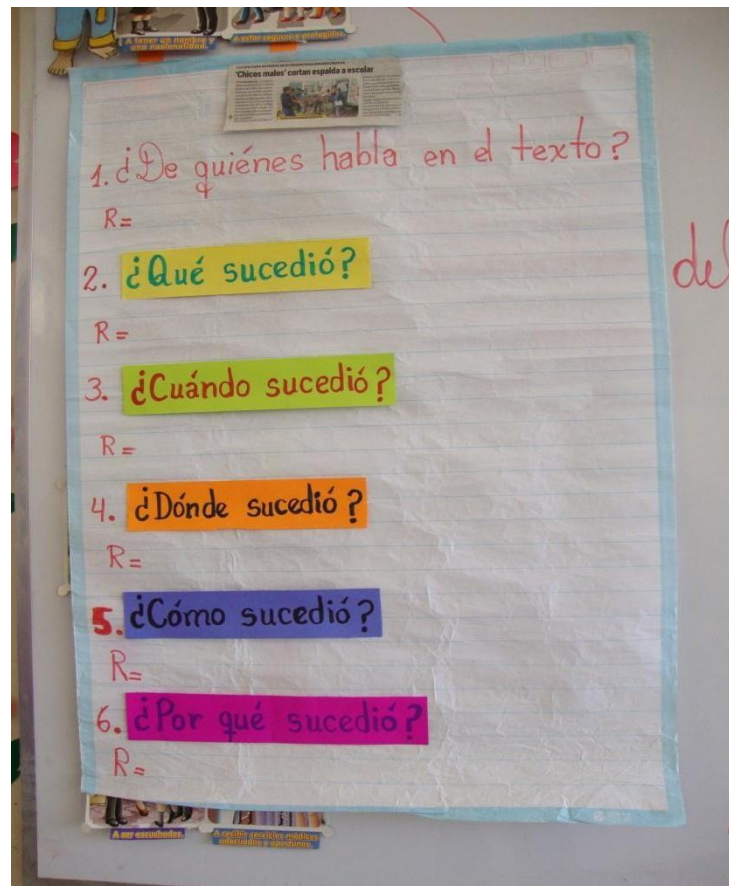 A tener un nombre y
una nacionalidad.
A estar seguros y protegidos.
'Chicos malos' cortan espalda a escolar
1. ¿De quiénes habla en el texto?
R=
2. ¿Qué sucedió?
R=
del
3. ¿Cuándo sucedió?
R=
4. ¿Dónde sucedió?
R=
5. ¿Cómo sucedió?
R=
6. ¿Por qué sucedió?
R=
A ser escuchados.
A recibir servicios médicos
adecuados y oportunos.